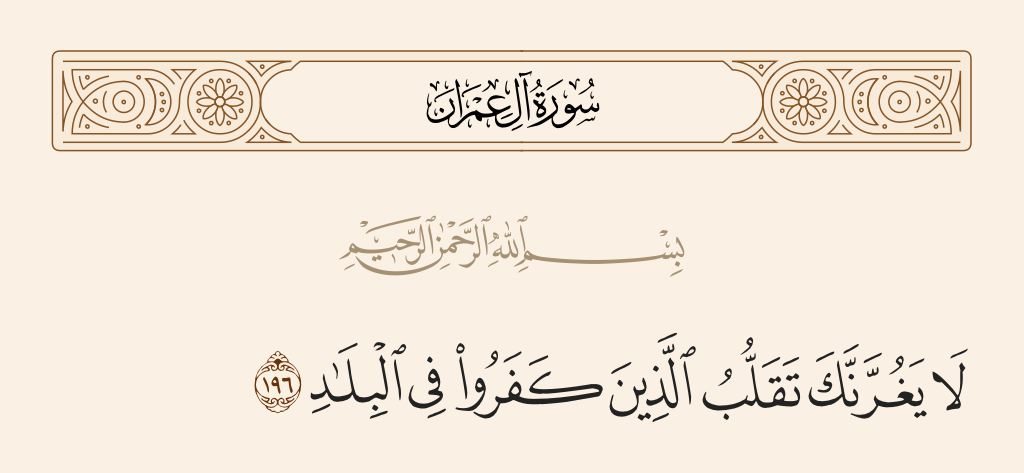 سُورَةُ آلِ عِمْرَان
بِسْمِ ٱللَّهِ ٱلرَّحْمَٰنِ ٱلرَّحِيمِ
لَا يَغُرَّنَّكَ تَقَلُّبُ ٱلَّذِينَ كَفَرُوا۟ فِى ٱلْبِلَـٰدِ ١٩٦